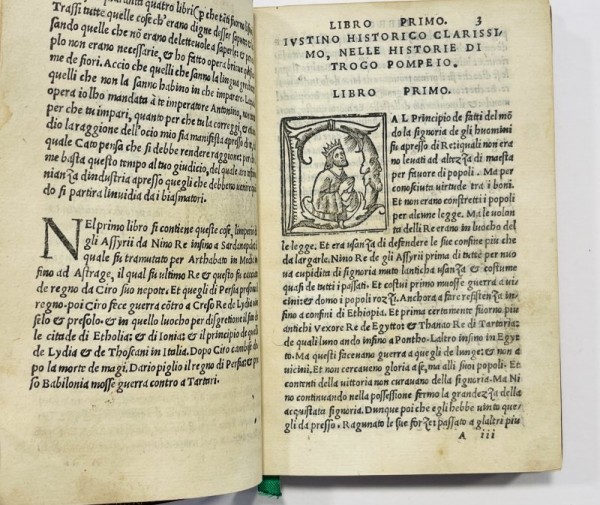 opera con quatro libri
Trassi tutte quelle cose ch'erano digne desser sapute
sando quelle che nõ erano delettevole a saperle,
plo non erano necessarie, & ho fatto opera brieve
me de fiori. Accio che quelli che sanno la lingua
quelli che non la sanno habino in che imparare. La
opera io lho mandata à te imperatore Antonino, non
per che tu impari, quanto per che tu la correggi, &
dio la raggione dell'ocio mio sia manifesta apresso
quale Cato pensa che si debbe rendere raggione: per
me basta questo tempo al tuo giudicio, del quale
nianza d'industria apresso quegli che debbeno
do si partira linvidia da i biasmatori.
NEl primo libro si contiene queste cose, limperio
gli Assyrii da Nino Re insino a Sardanapalo
quale fu tramutato per Arthabato in Medi
fino ad Astrage, il qual fu ultimo Re & questo fu
de regno da Ciro suo nepote. Et quegli di Persia
regno. poi Ciro fece guerra cõtro a Creso Re de Lydia
selo & presolo. & in quello luocho per disgretione
le citade di Etholia: & di Ionia: & il principio de
de Lydia & de Thoscani in Italia. Dopo Ciro
po la morte de magi. Dario piglio il regno di Persia: &
so Babilonia mosse guerra contro a Tartari.
LIBRO PRIMO. 3
IVSTINO HISTORICO CLARISSI
MO, NELLE HISTORIE DI
TROGO POMPEIO.
LIBRO PRIMO.
AL Principio de fatti del mõ
do la signoria de gli huomini
fu apresso di Re: iquali non era
no levati ad altezza di maesta
per favore di popoli. Ma per
conosciuta virtude tra i boni.
Et non erano constretti i popoli
per alcune legge. Ma le volon
ta delli Re erano in luocho del
le legge. Et era usanza di defendere le sue confine piu che
da largarle. Nino Re de gli Assyrii prima di tutte per nuo
va cupidita di signoria muto lanticha usanza & costume
quasi de tutti i passati. Et costui primo muosse guerra a vi
cini: & domo i popoli rozi. Anchora a fare resistenza in
fino a confini di Ethiopia. Et prima certamente fuorno piu
antichi Vexore Re de Egytto: & Thanao Re di Tartaria:
de quali luno ando insino a Pontho. Laltro insino in Egyt
to. Ma questi facevano guerra a que gli de lunge: & non a
vicini, Et non cercaveno gloria a se, ma alli suoi popoli. Et
contenti della vittoria non curavano della signoria. Ma Ni
no continuando nella possessione fermo la grandezza della
acquistata signoria. Dunque poi che egli hebbe vinto que
gli da presso. Ragunato le sue forze: passato a glaltri piu
A iii